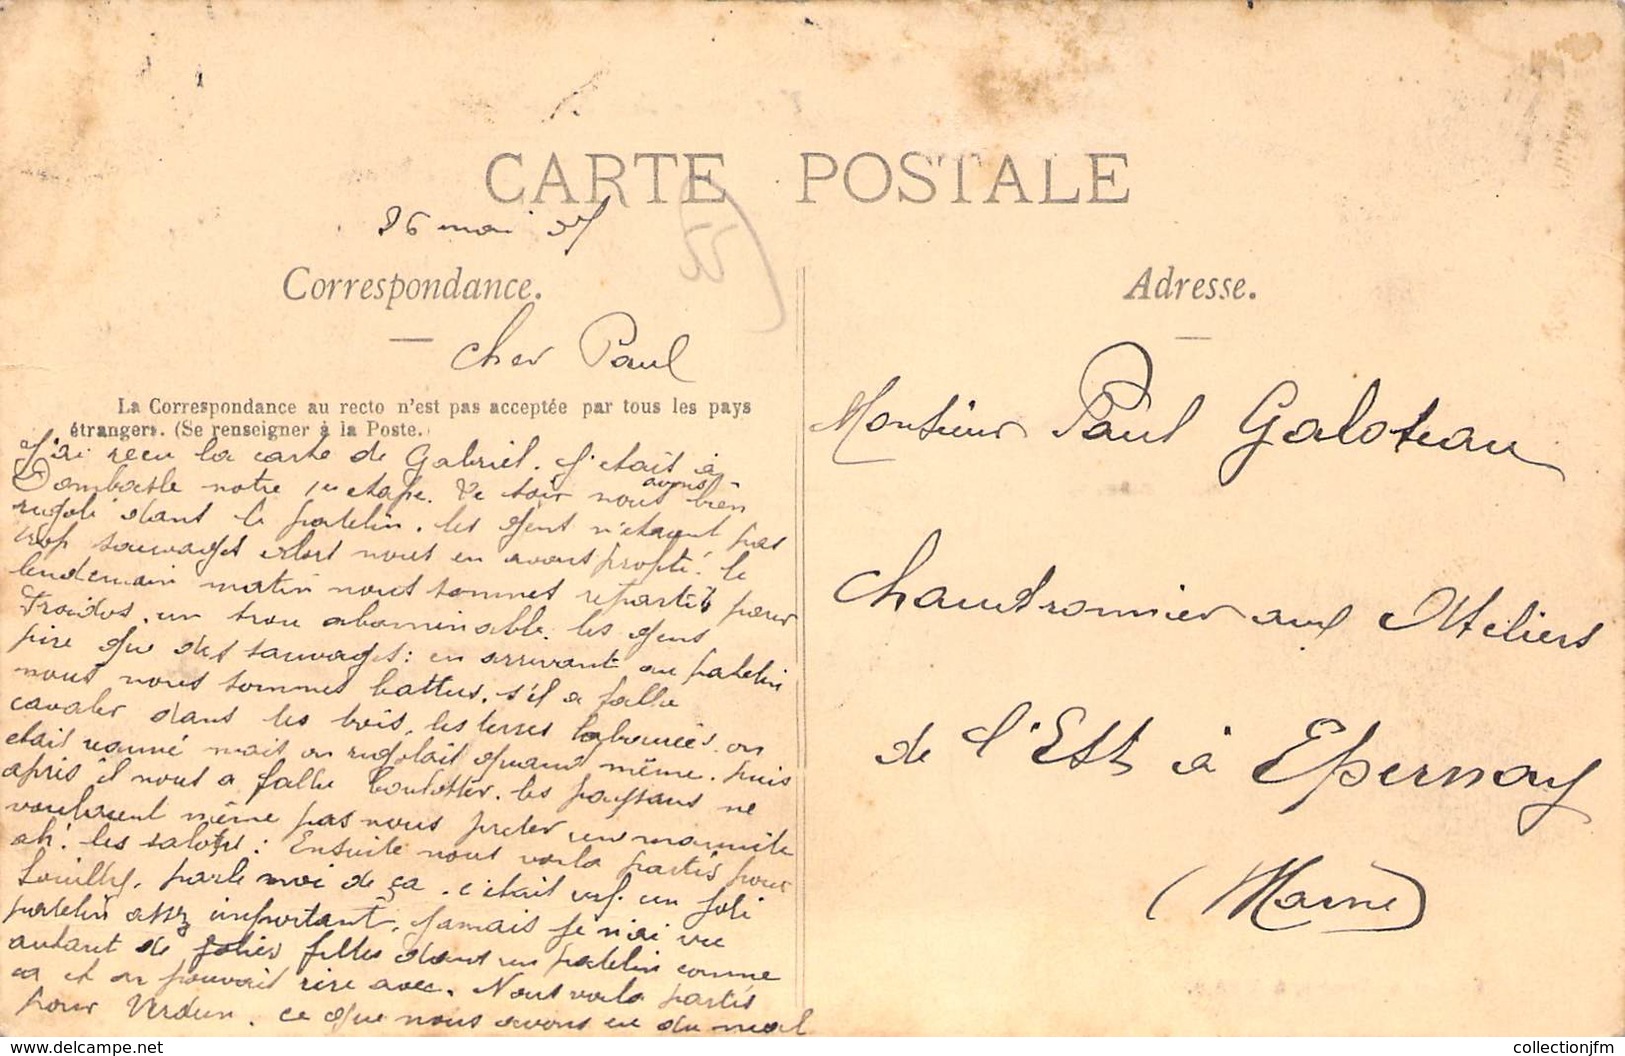 CARTE POSTALE
26 mai
Correspondance.
cher Paul
La Correspondance au recto n'est pas acceptée par tous les pays
étrangers. (Se renseigner à la Poste.)
J'ai reçu la carte de Gabriel. J'etait à
Dombasle notre 1re etape. Le soir nous avons bien
rigolé dans le patelin. les gens n'étaient pas
trop sauvages alors nous en avons profité. le
lendemain matin nous sommes repartis pour
Froidos. un trou abominable. les gens
pire que des sauvages: en arrivant au patelin
nous nous sommes battus. s'il a fallu
cavaler dans les bois, les terres labourées. on
etait vanné mais on rigolait quand même. puis
après il nous a fallu boulotter. les paysans ne
voulaient même pas nous preter une marmite
ah! les salots: Ensuite nous voila partis pour
Souilly, parle moi de ça. c'était un joli
patelin assez important. Jamais je n'ai vu
autant de jolies filles dans un patelin comme
ça et on pouvait rire avec. Nous voila partis
pour Verdun. ce que nous avons eu du mal
Adresse.
Monsieur Paul Galoteau
Chaudronnier aux Ateliers
de l'Est à Epernay
(Marne)
collectionjfm